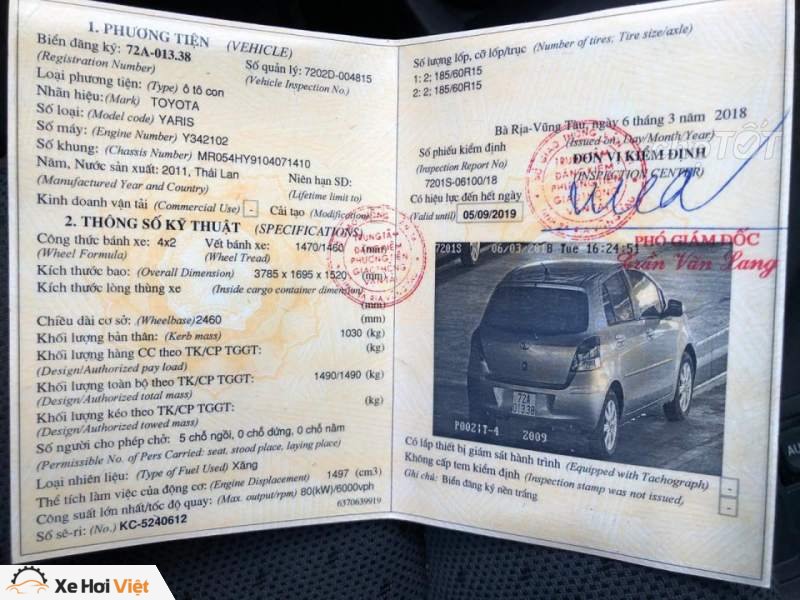 1. PHƯƠNG TIỆN (VEHICLE)
Biển đăng ký: 72A-013.38
(Registration Number)
Số quản lý: 7202D-004815
(Vehicle Inspection No.)
Loại phương tiện: (Type) ô tô con
Nhãn hiệu: (Mark) TOYOTA
Số loại: (Model code) YARIS
Số máy: (Engine Number) Y342102
Số khung: (Chassis Number) MR054HY9104071410
Năm, Nước sản xuất: 2011, Thái Lan
(Manufactured Year and Country)
Niên hạn SD:
(Lifetime limit to)
Kinh doanh vận tải (Commercial Use) - Cải tạo (Modification)
2. THÔNG SỐ KỸ THUẬT (SPECIFICATIONS)
Công thức bánh xe: 4x2
(Wheel Formula)
Vết bánh xe: 1470/1460 (mm)
(Wheel Tread)
Kích thước bao: (Overall Dimension) 3785 x 1695 x 1520 (mm)
Kích thước lòng thùng xe (Inside cargo container dimension)
(mm)
Chiều dài cơ sở: (Wheelbase) 2460 (mm)
Khối lượng bản thân: (Kerb mass) 1030 (kg)
Khối lượng hàng CC theo TK/CP TGGT: (kg)
(Design/Authorized pay load)
Khối lượng toàn bộ theo TK/CP TGGT: 1490/1490 (kg)
(Design/Authorized total mass)
Khối lượng kéo theo TK/CP TGGT: (kg)
(Design/Authorized towed mass)
Số người cho phép chở: 5 chỗ ngồi, 0 chỗ đứng, 0 chỗ nằm
(Permissible No. of Pers Carried: seat, stood place, laying place)
Loại nhiên liệu: (Type of Fuel Used) Xăng
Thể tích làm việc của động cơ: (Engine Displacement) 1497 (cm3)
Công suất lớn nhất/tốc độ quay: (Max. output/rpm) 80(kW)/6000vph
6370639919
Số sê-ri: (No.) KC-5240612
Số lượng lốp, cỡ lốp/trục (Number of tires; Tire size/axle)
1: 2; 185/60R15
2: 2; 185/60R15
Bà Rịa-Vũng Tàu, ngày 6 tháng 3 năm 2018
(Issued on, Day/Month/Year)
Số phiếu kiểm định
(Inspection Report No)
7201S-06100/18
ĐƠN VỊ KIỂM ĐỊNH
(INSPECTION CENTER)
Có hiệu lực đến hết ngày
(Valid until) 05/09/2019
PHÓ GIÁM ĐỐC
Trần Văn Lang
7201S 06/03/2018 Tue 16:24:51
72A
013.38
2009
Có lắp thiết bị giám sát hành trình (Equipped with Tachograph) -
Không cấp tem kiểm định (Inspection stamp was not issued) -
Ghi chú: Biển đăng ký nền trắng
Xe Hơi Việt